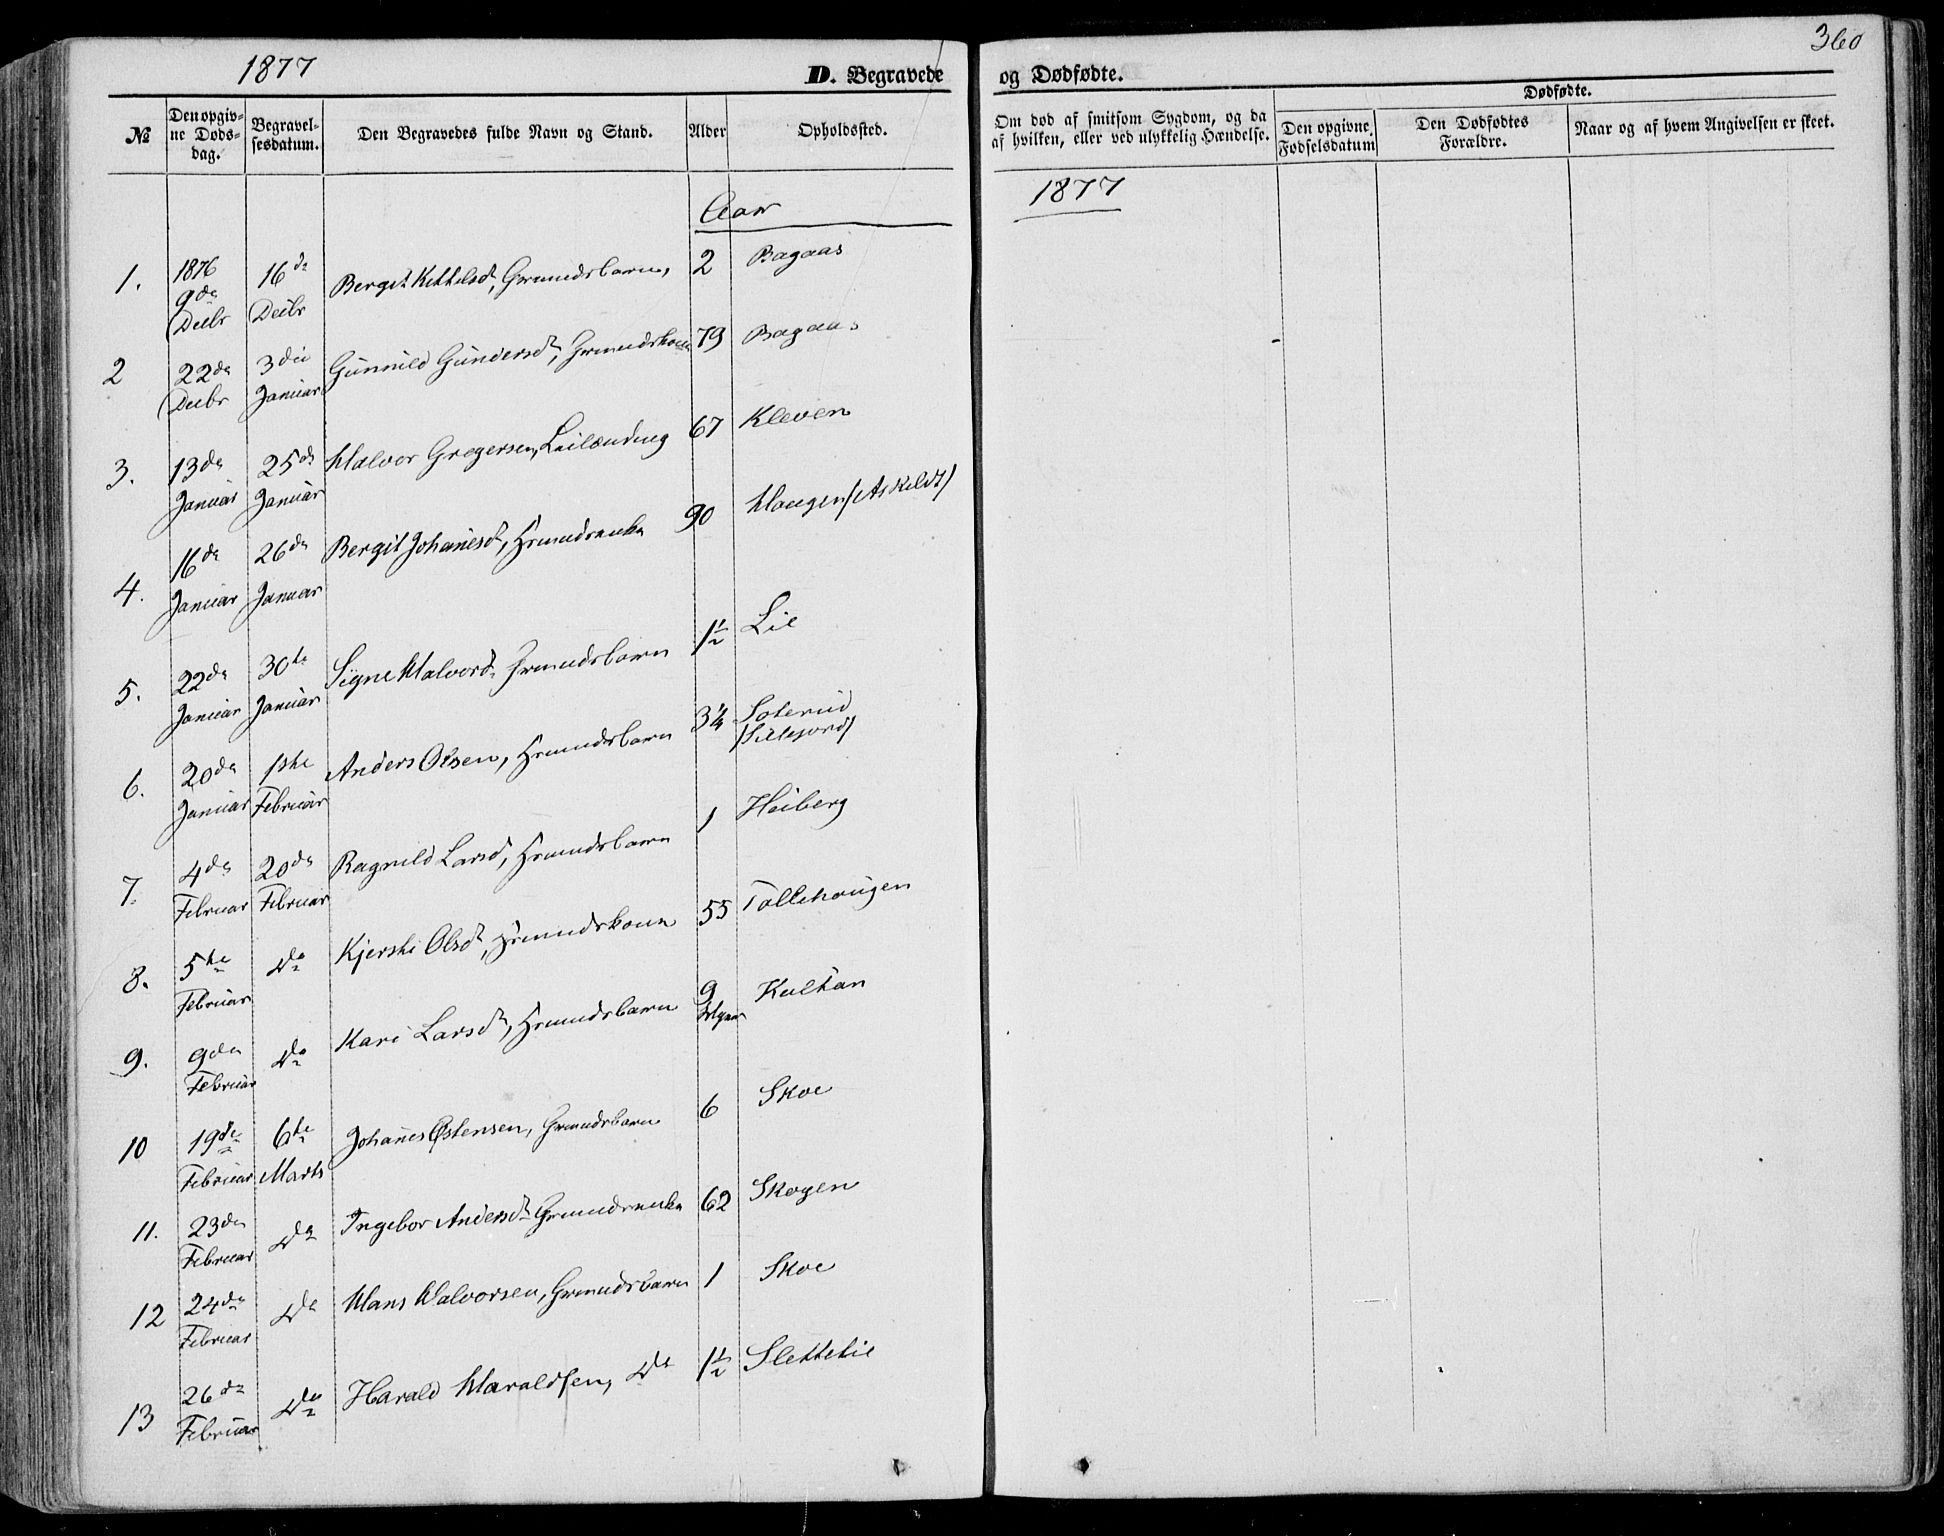 1877
D. Begravede og Dødfødte.
360
№
Den opgivne Dødsdag.
Begravelsesdatum.
Den Begravedes fulde Navn og Stand.
Alder
Opholdssted.
Om død af smitsom Sygdom, og da af hvilken, eller ved ulykkelig Hændelse.
Dødfødte.
Den opgivne Fødselsdatum
Den Dødfødtes Forældre.
Naar og af hvem Angivelsen er skeet.
1877
Aar
1. 1876 9de Decbr 16de Decbr Bergit Kittilsd, Grmndsbarn, 2 Bagaas
2 22de Decbr 3die Januar Gunnild Gundersd, Grmndskone 79 Bagaas
3. 13de Januar 25de Januar Halvor Gregersen, Leilænding 67 Kleven
4. 16de Januar 26de Januar Bergit Johanesd, Grmndsenke 90 Haugen /Askildt/
5. 22de Januar 30te Januar Signe Halvord. Grmndsbarn 1½ Lie
6. 20de Januar 1ste Februar Anders Olsen, Grmndsbarn 3¼ Soterud /Sillejord/
7. 4de Februar 20de Februar Ragnild Larsd, Grmndsbarn 1 Heiberg
8. 5te Februar do Kjersti Olsd, Grmndskone 55 Tollehougen
9. 9de Februar do Kari Larsd, Grmndsbarn 9 Kultan
10 19de Februar 6te Marts Johanes Østensen, Grmndsbarn 6 Skoe
11. 23de Februar do Ingebor Andersd Grmndsenke 62 Skogen
12 24de Februar do Hans Halvorsen, Grmndsbarn 1 Skoe
13 26de Februar do Harald Haraldsen, do 1½ Slettelie